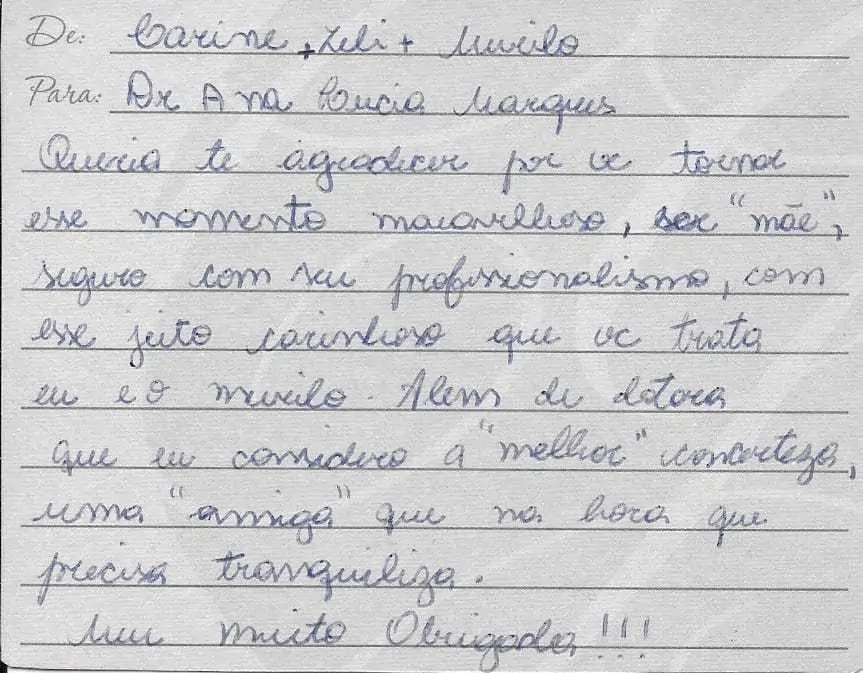 De: Carine + Zeli + Murilo
Para: Dr Ana Lucia Marques
Queria te agradecer por vc tornar
esse momento maravilhoso, ser "mãe",
seguro com seu profissionalismo, com
esse jeito carinhoso que vc trata
eu e o murilo. Alem de dotora
que eu considero a "melhor" concerteza,
uma "amiga" que na hora que
precisa tranquiliza.
Meu muito Obrigada!!!